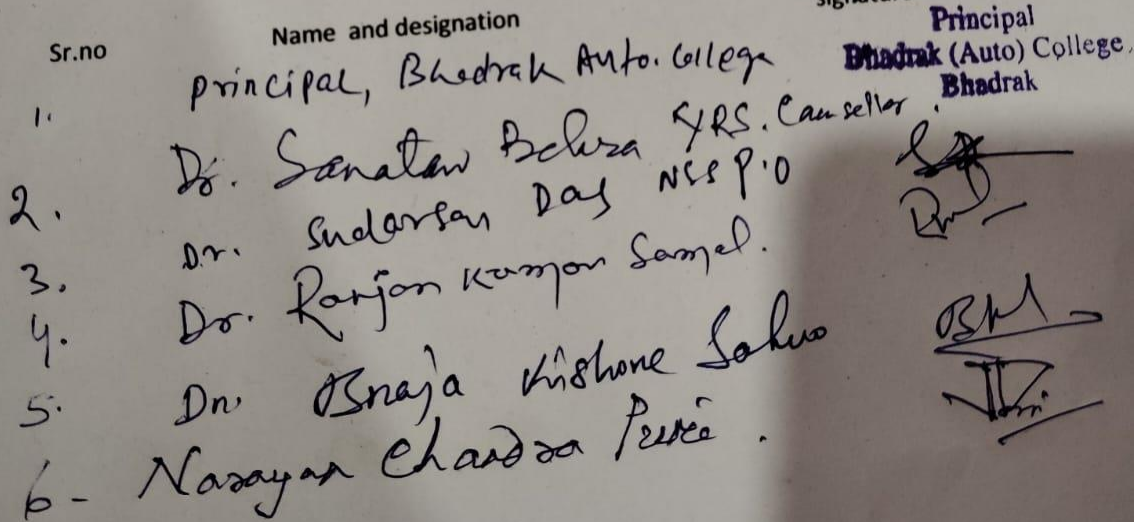 Sr.no Name and designation
1. Principal, Bhadrak Auto. College
Principal
Bhadrak (Auto) College,
Bhadrak
2. Dr. Sanatan Behra YRS. Caunsellor.
3. Dr. Sudarsan Das NSS P.O
4. Dr. Ranjan Kumar Samal.
5. Dr. Braja Kishore Sahu
6- Narayan Chandra